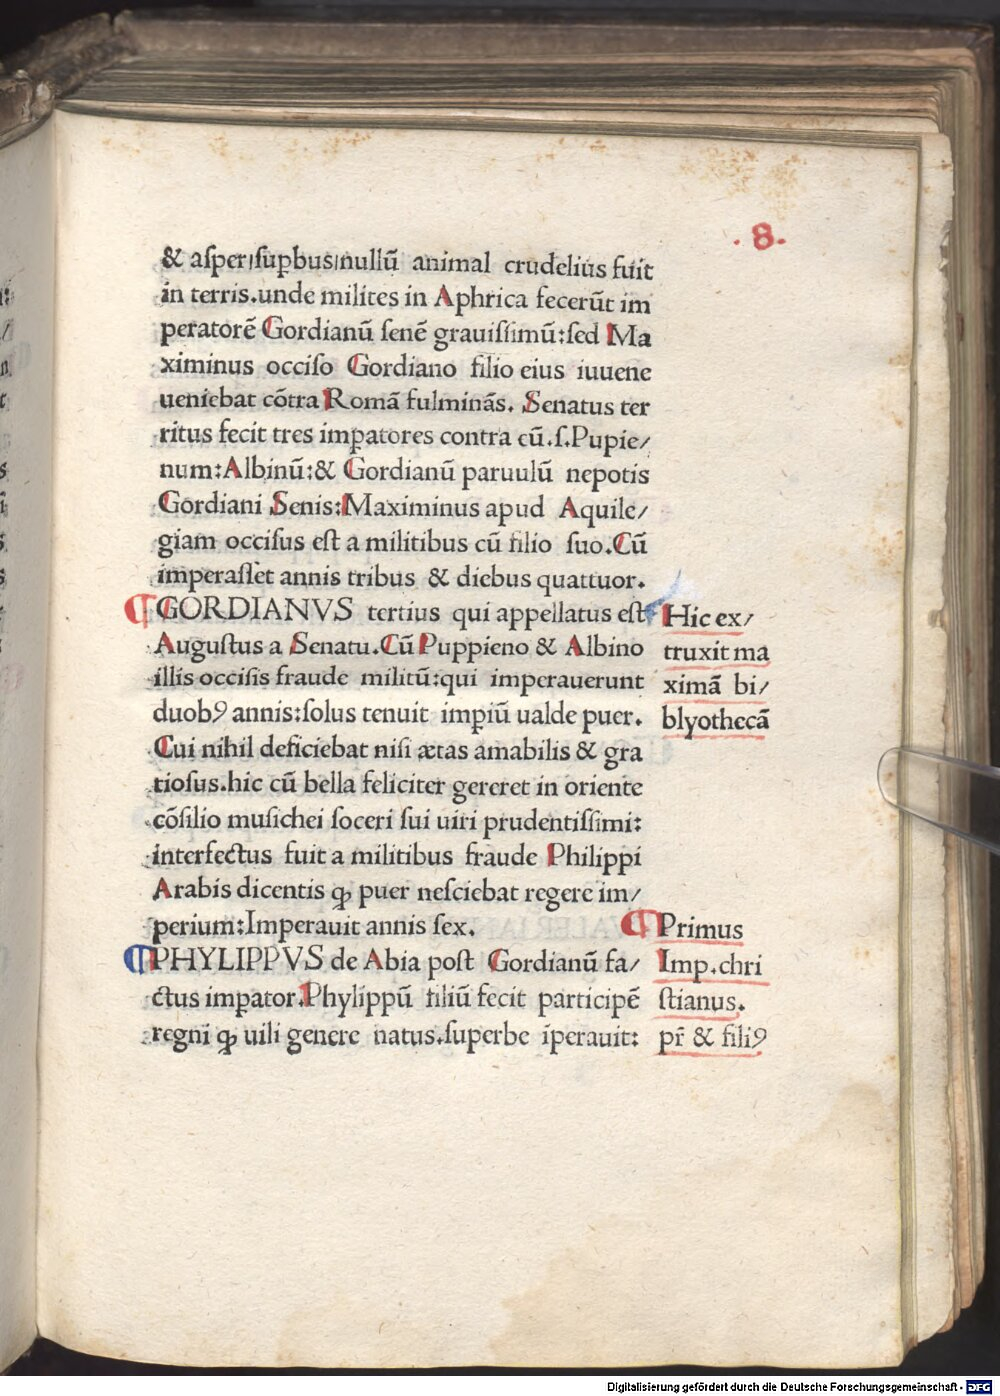 .8.
& aſper/ſuꝑbus/nullū animal crudelius fuit
in terris.unde milites in Aphrica fecerūt im
peratorē Gordianū ſenē grauiſſimū:ſed Ma
ximinus occiſo Gordiano filio eius iuuene
ueniebat cōtra Romā fulminās. Senatus ter
ritus fecit tres imꝑatores contra eū.ſ.Pupie/
num:Albinū:& Gordianū paruulū nepotis
Gordiani Senis:Maximinus apud Aquile/
giam occiſus eſt a militibus cū filio ſuo.Cū
imperaſſet annis tribus & diebus quattuor.
¶GORDIANVS tertius qui appellatus eſt
Auguſtus a Senatu.Cū Puppieno & Albino
illis occiſis fraude militū:qui imperauerunt
duobꝰ annis:ſolus tenuit imꝑiū ualde puer.
Cui nihil deficiebat niſi ætas amabilis & gra
tioſus.hic cū bella feliciter gereret in oriente
cōſilio muſichei ſoceri ſui uiri prudentiſſimi:
interfectus fuit a militibus fraude Philippi
Arabis dicentis ꝙ puer neſciebat regere im/
perium:Imperauit annis ſex.
¶PHYLIPPVS de Abia poſt Gordianū fa/
ctus imꝑator.Phylippū filiū fecit participē
regni ꝙ uili genere natus.ſuperbe īperauit:
Hic ex/
truxit ma
ximā bi/
blyothecā
¶Primus
Imp.chri
ſtianus.
pr̄ & filiꝰ
Digitalisierung gefördert durch die Deutsche Forschungsgemeinschaft - DFG